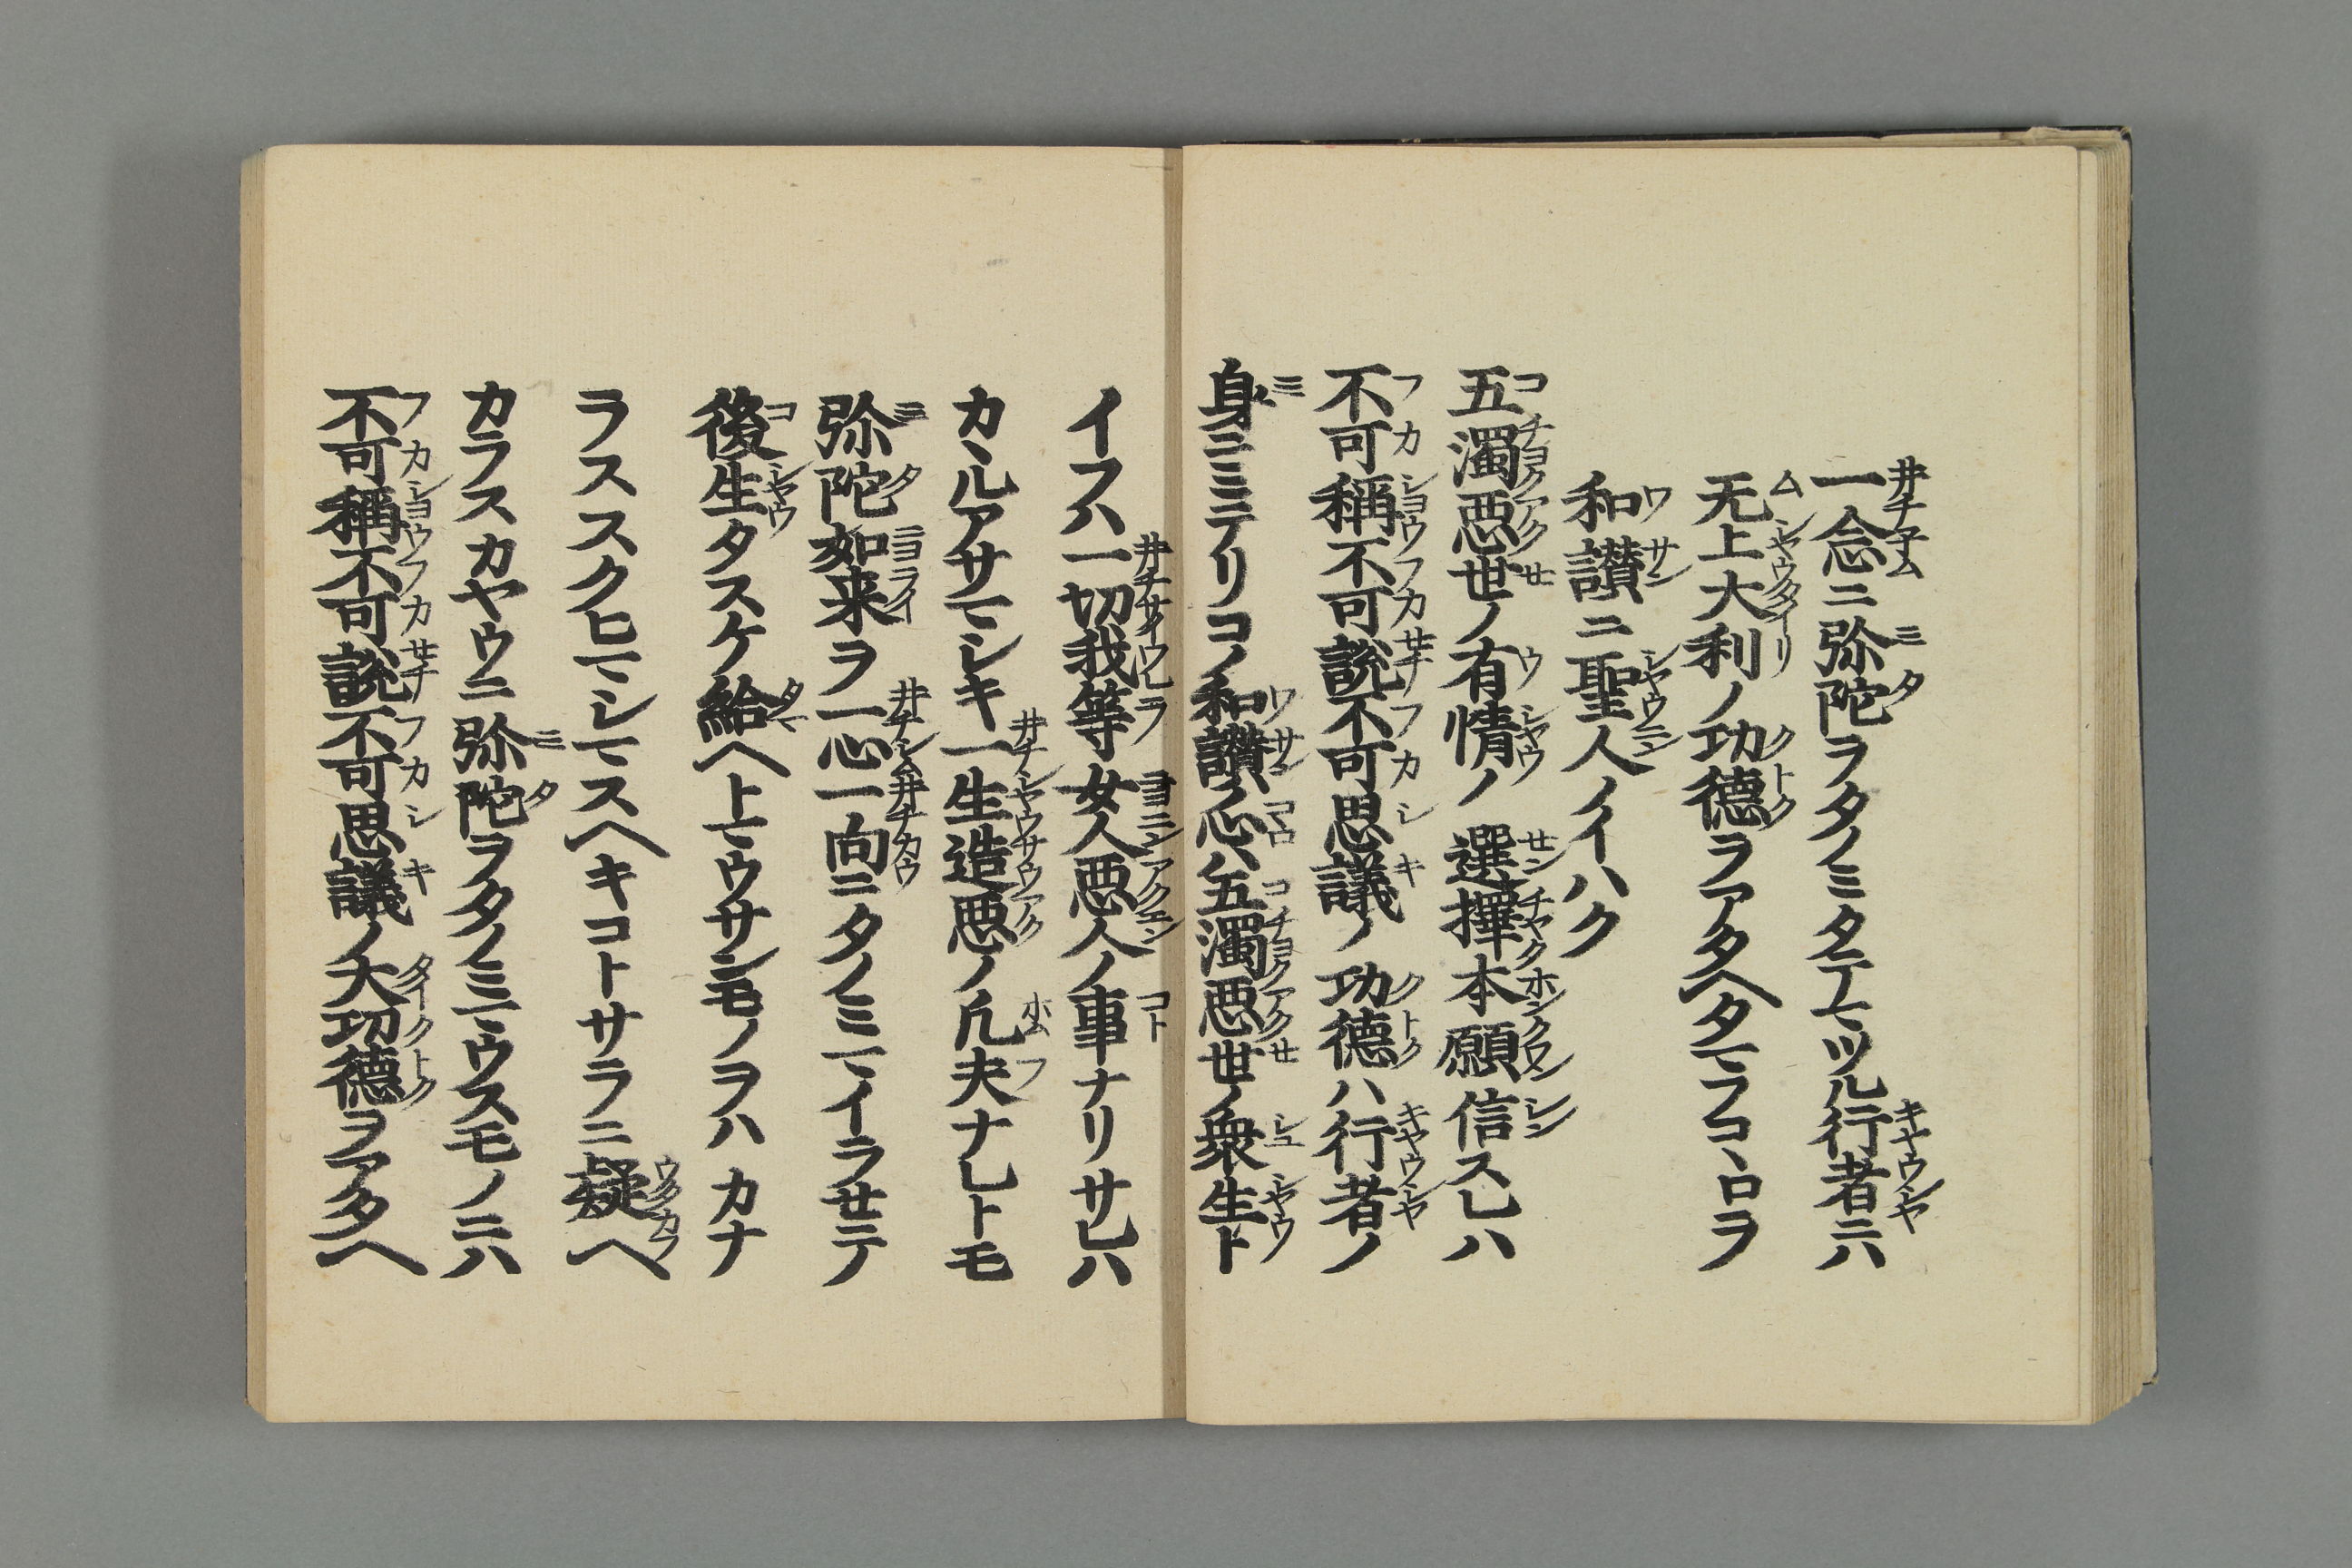 一念ニ弥陀ヲタノミタテマツル行者ニハ
无上大利ノ功德ヲアタヘタマフコヽロヲ
和讃ニ聖人ノイハク
五濁悪世ノ有情ノ 選擇本願信スレハ
不可稱不可説不可思議ノ 功德ハ行者ノ
身ニミテリコノ和讃ノ心ハ五濁悪世ノ衆生ト
イフハ一切我等女人悪人ノ事ナリサレハ
カヽルアサマシキ一生造悪ノ凡夫ナレトモ
弥陀如来ヲ一心一向ニタノミマイラセテ
後生タスケ給ヘトマウサンモノヲハカナ
ラススクヒマシマスヘキコトサラニ疑ヘ
カラスカヤウニ弥陀ヲタノミマウスモノニハ
不可稱不可説不可思議ノ大功德ヲアタヘ